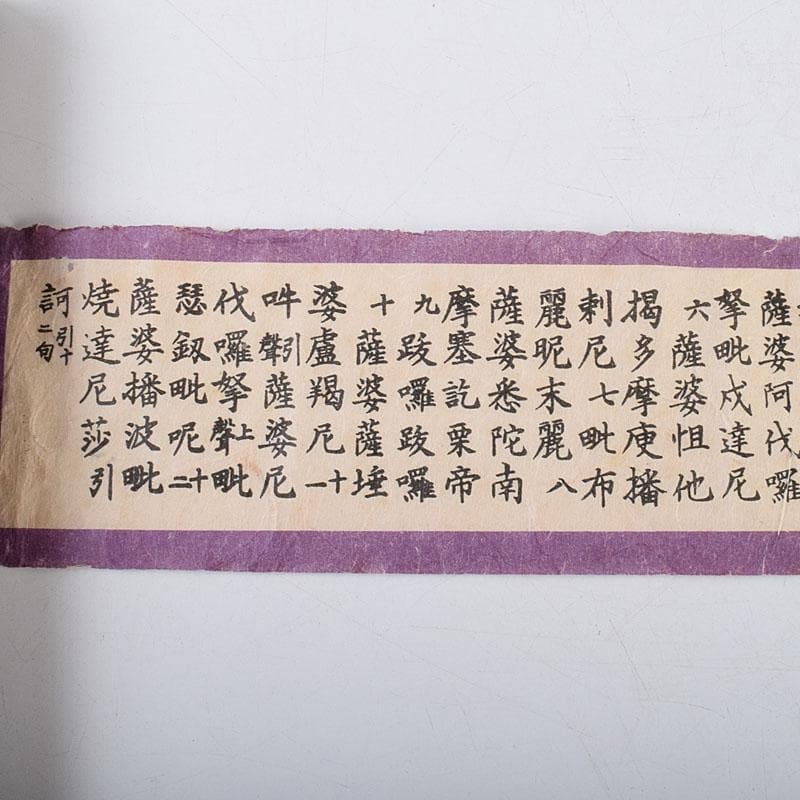 薩婆阿伐囉
拏毗戍達尼
六薩婆怛他
揭多摩庾播
剌尼七毗布
麗昵末麗八
薩婆悉陀南
摩塞訖栗帝
九跋囉跋囉
十薩婆薩埵
婆盧羯尼十一
吽引聲薩婆尼
伐囉拏上聲毗
瑟釼毗呢十二
薩婆播波毗
燒達尼莎引
訶引十二句